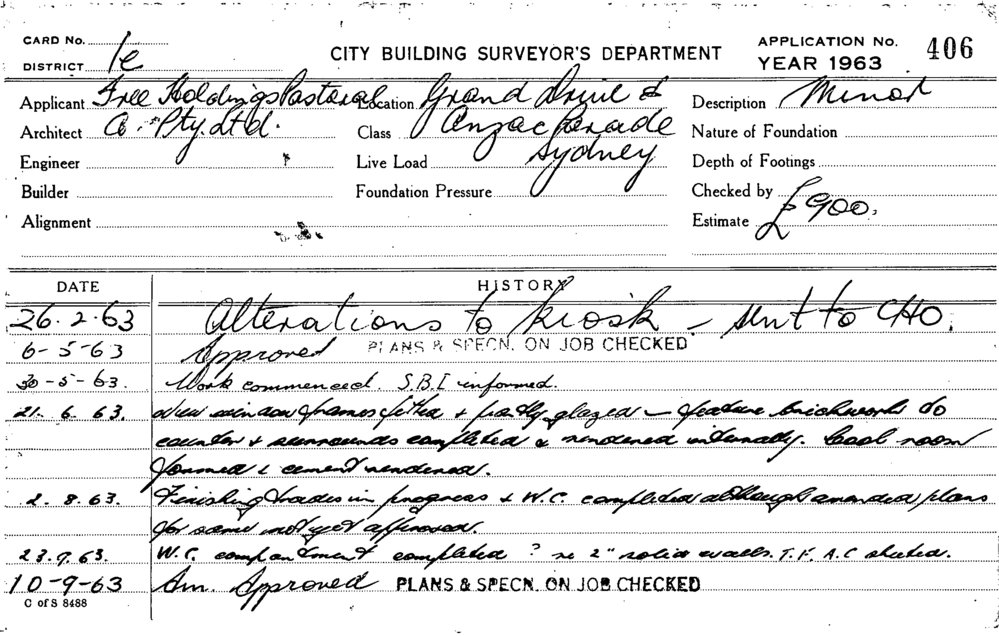 CARD No.
DISTRICT 1e
CITY BUILDING SURVEYOR'S DEPARTMENT
APPLICATION No. 406
YEAR 1963
Applicant Free Holdings Pastoral Location Grand Drive & Description Minor
Architect Co. Pty. Ltd. Class Anzac Parade Nature of Foundation
Engineer Live Load Sydney Depth of Footings
Builder Foundation Pressure Checked by
Alignment Estimate £900.
DATE HISTORY
26.2.63 Alterations to kiosk - sent to CHO.
6-5-63 Approved PLANS & SPECN. ON JOB CHECKED
30-5-63. Work commenced. S.B.I informed.
21. 6. 63. New window frames fitted & partly glazed - feature brickwork to
counter & surrounds completed & rendered internally. Cool room
formed & cement rendered.
2. 8. 63. Finishing trades in progress & W.C. completed although amended plans
for same not yet approved.
23.9.63. W.C. compartment completed ? re 2" solid walls. T.F. A.C sheeted.
10-9-63 Am. Approved PLANS & SPECN. ON JOB CHECKED
C of S 8488